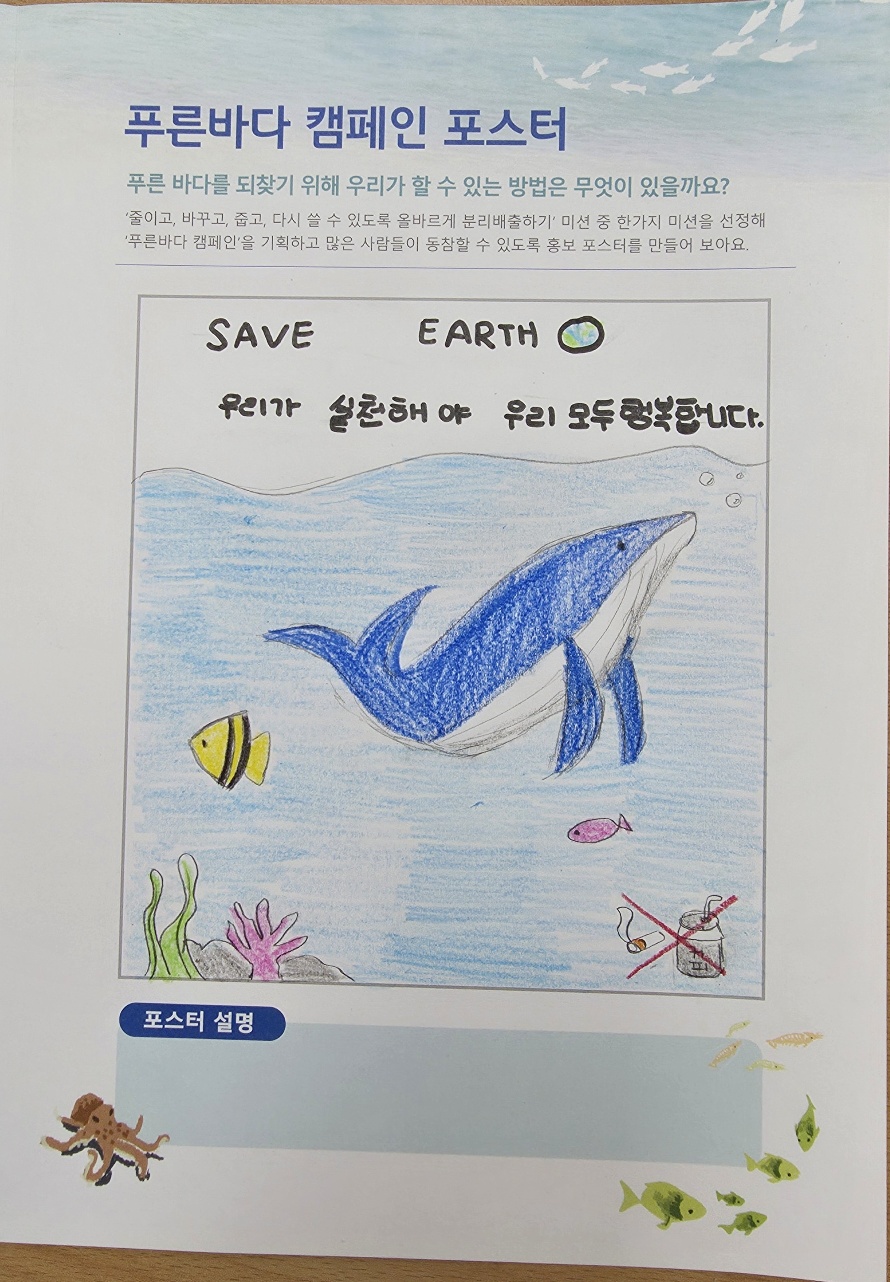 푸른바다 캠페인 포스터
푸른 바다를 되찾기 위해 우리가 할 수 있는 방법은 무엇이 있을까요?
'줄이고, 바꾸고, 줍고, 다시 쓸 수 있도록 올바르게 분리배출하기' 미션 중 한가지 미션을 선정해
'푸른바다 캠페인'을 기획하고 많은 사람들이 동참할 수 있도록 홍보 포스터를 만들어 보아요.
SAVE EARTH
우리가 실천해야 우리 모두 행복합니다.
커피
포스터 설명